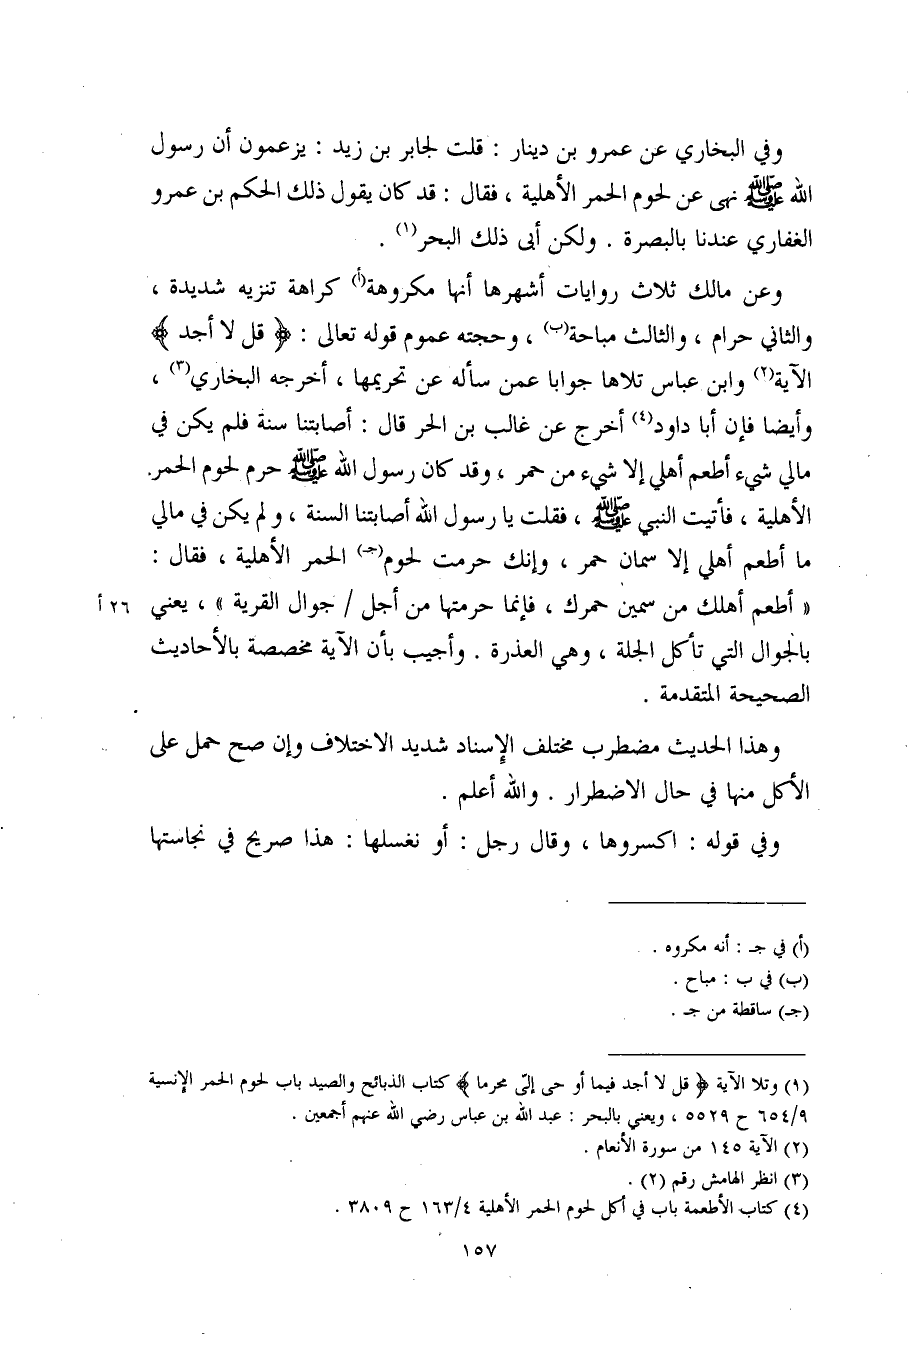 وفي البخاري عن عمرو بن دينار : قلت لجابر بن زيد : يزعمون أن رسول
الله ﷺ نهى عن لحوم الحمر الأهلية ، فقال : قد كان يقول ذلك الحكم بن عمرو
الغفاري عندنا بالبصرة . ولكن أبى ذلك البحر(١) .
وعن مالك ثلاث روايات أشهرها أنها مكروهة(أ) كراهة تنزيه شديدة ،
والثاني حرام ، والثالث مباحة(ب) ، وحجته عموم قوله تعالى : ﴿ قل لا أجد ﴾
الآية(٢) وابن عباس تلاها جوابا عمن سأله عن تحريمها ، أخرجه البخاري(٣) ،
وأيضا فإن أبا داود(٤) أخرج عن غالب بن الحر قال : أصابتنا سنة فلم يكن في
مالي شيء أطعم أهلي إلا شيء من حمر ، وقد كان رسول الله ﷺ حرم لحوم الحمر
الأهلية ، فأتيت النبي ﷺ ، فقلت يا رسول الله أصابتنا السنة ، ولم يكن في مالي
ما أطعم أهلي إلا سمان حمر ، وإنك حرمت لحوم(جـ) الحمر الأهلية ، فقال :
« أطعم أهلك من سمين حمرك ، فإنما حرمتها من أجل / جوال القرية » ، يعني ٢٦ أ
بالجوال التي تأكل الجلة ، وهي العذرة . وأجيب بأن الآية مخصصة بالأحاديث
الصحيحة المتقدمة .
وهذا الحديث مضطرب مختلف الإسناد شديد الاختلاف وإن صح حمل على
الأكل منها في حال الاضطرار . والله أعلم .
وفي قوله : اكسروها ، وقال رجل : أو نغسلها : هذا صريح في نجاستها
(أ) في جـ : أنه مكروه .
(ب) في ب : مباح .
(جـ) ساقطة من جـ .
(١) وتلا الآية ﴿ قل لا أجد فيما أو حى إليّ محرما ﴾ كتاب الذبائح والصيد باب لحوم الحمر الإنسية
٦٥٤/٩ ح ٥٥٢٩ ، ويعني بالبحر : عبد الله بن عباس رضي الله عنهم أجمعين .
(٢) الآية ١٤٥ من سورة الأنعام .
(٣) انظر الهامش رقم (٢) .
(٤) كتاب الأطعمة باب في أكل لحوم الحمر الأهلية ١٦٣/٤ ح ٣٨٠٩ .
١٥٧